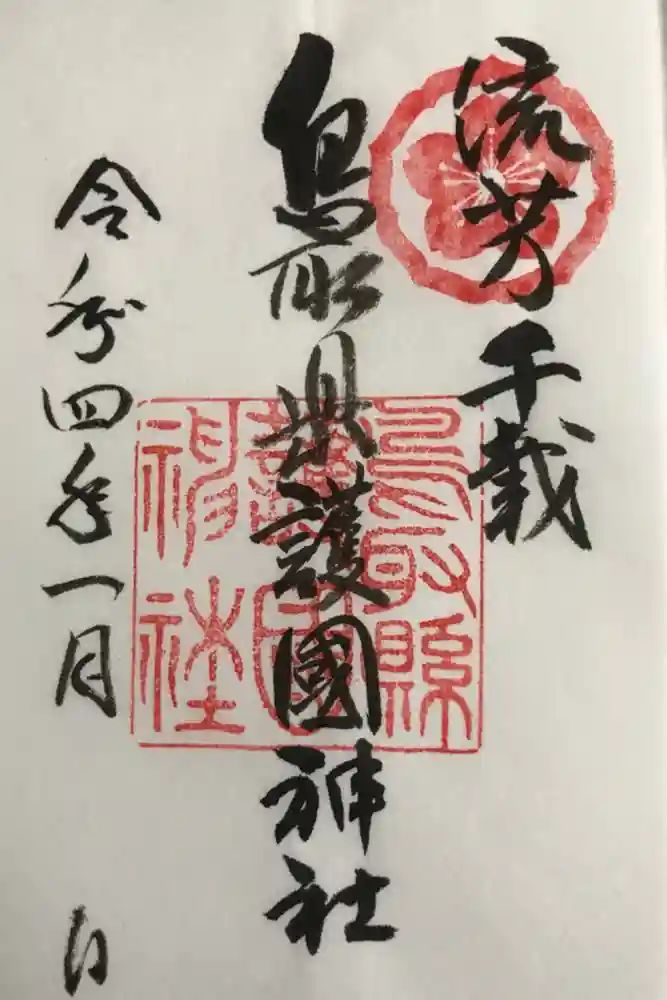 流芳千載
鳥取県護國神社
鳥取縣護國神社
令和四年一月 日